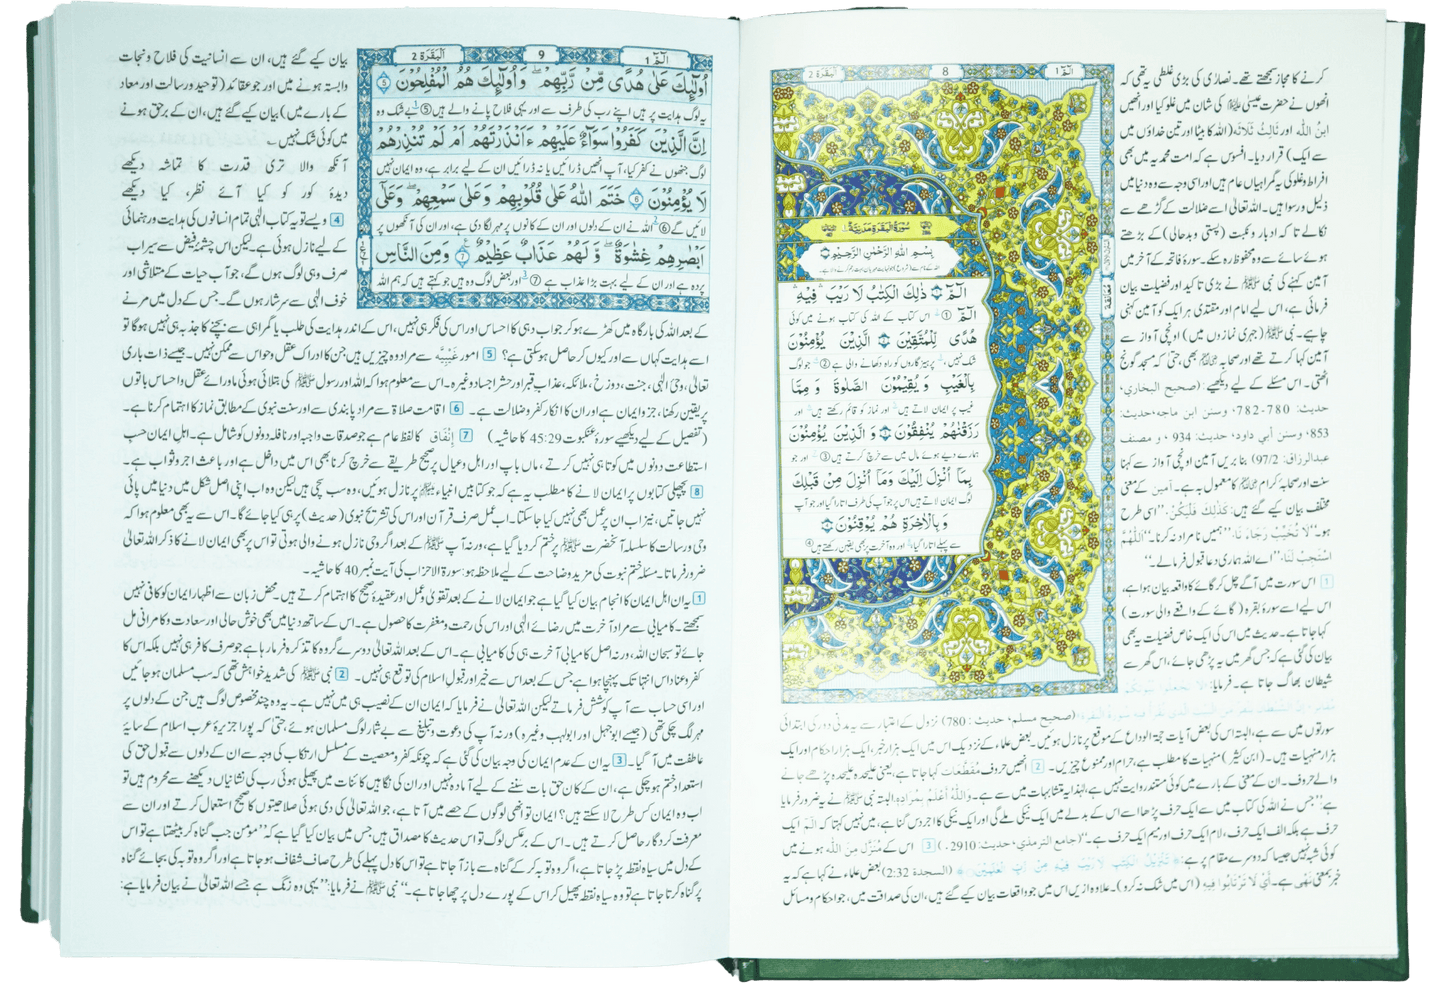 کرنے کا مجاز سمجھتے تھے۔ نصاریٰ کی بڑی غلطی یہ تھی کہ
انھوں نے حضرت عیسیٰ علیہ السلام کی شان میں غلو کیا اور انھیں
ابنُ اللّٰه اور ثَالِثُ ثَلَاثَة (اللہ کا بیٹا اور تین خداؤں میں
سے ایک) قرار دیا۔ افسوس ہے کہ امت محمدیہ میں بھی
افراط وغلو کی یہ گمراہیاں عام ہیں اور اسی وجہ سے وہ دنیا میں
ذلیل ورسوا ہیں۔ اللہ تعالیٰ اسے ضلالت کے گڑھے سے
نکالے تاکہ ادبار ونکبت (پستی وبدحالی) کے بڑھتے
ہوئے سائے سے وہ محفوظ رہ سکے۔ سورۂ فاتحہ کے آخر میں
آمین کہنے کی نبی ﷺ نے بڑی تاکید اور فضیلت بیان
فرمائی ہے، اس لیے امام اور مقتدی ہر ایک کو آمین کہنی
چاہیے۔ نبی ﷺ (جہری نمازوں میں) اونچی آواز سے
آمین کہا کرتے تھے اور صحابہ بھی حتیٰ کہ مسجد گونج
اٹھتی۔ اس مسئلے کے لیے دیکھیے (صحیح البخاري،
حدیث: 780-782، وسنن ابن ماجه، حدیث:
853، وسنن أبي داود، حدیث: 934 ، و مصنف
عبدالرزاق: 97/2) بنا بریں آمین اونچی آواز سے کہنا
سنت اور صحابہ کرام کا معمول بہ ہے۔ آمین کے معنی
مختلف بیان کیے گئے ہیں: کَذٰلِكَ فَلْیَکُنْ ''اسی طرح
ہو۔'' لَا تُخَیِّبْ رَجَاءَ نَا، ''ہمیں نامراد نہ کرنا۔'' اَللّٰهُمَّ
اسْتَجِبْ لَنَا، ''اے اللہ ہماری دعا قبول فرما لے۔''
1 اس سورت میں آگے چل کر گائے کا واقعہ بیان ہوا ہے،
اس لیے اسے سورۂ بقرہ (گائے کے واقعے والی سورت)
کہا جاتا ہے۔ حدیث میں اس کی ایک خاص فضیلت یہ بھی
بیان کی گئی ہے کہ جس گھر میں یہ پڑھی جائے، اس گھر سے
شیطان بھاگ جاتا ہے۔ فرمایا:
الٓمّٓ 1
8
اَلْبَقَرَة 2
سُوْرَةُ الْبَقَرَةِ مَدَنِيَّةٌ
بِسْمِ اللّٰهِ الرَّحْمٰنِ الرَّحِيْمِ
الٓمّٓ ① ذٰلِكَ الْكِتٰبُ لَا رَيْبَ فِيْهِ
الٓمّٓ ① اس کتاب کے اللہ کی کتاب ہونے میں کوئی
هُدًى لِّلْمُتَّقِيْنَ ② الَّذِيْنَ يُؤْمِنُوْنَ
شک نہیں، پرہیزگاروں کو راہ دکھانے والی ہے ② جو لوگ
بِالْغَيْبِ وَ يُقِيْمُوْنَ الصَّلٰوةَ وَ مِمَّا
غیب پر ایمان لاتے ہیں اور نماز کو قائم رکھتے ہیں اور
رَزَقْنٰهُمْ يُنْفِقُوْنَ ③ وَ الَّذِيْنَ يُؤْمِنُوْنَ
ہمارے دیے ہوئے مال میں سے خرچ کرتے ہیں ③ اور جو
بِمَآ اُنْزِلَ اِلَيْكَ وَمَآ اُنْزِلَ مِنْ قَبْلِكَ
لوگ ایمان لاتے ہیں اس پر جو آپ کی طرف اتارا گیا اور جو آپ
وَ بِالْاٰخِرَةِ هُمْ يُوْقِنُوْنَ ④
سے پہلے اتارا گیا اور وہ آخرت پر بھی یقین رکھتے ہیں ④
(صحیح مسلم، حدیث: 780) نزول کے اعتبار سے یہ مدنی دور کی ابتدائی
سورتوں میں سے ہے، البتہ اس کی بعض آیات حجۃ الوداع کے موقع پر نازل ہوئیں۔ بعض علماء کے نزدیک اس میں ایک ہزار خبر، ایک ہزار احکام اور ایک
ہزار منہیات ہیں۔ (ابن کثیر) منہیات کا مطلب ہے، حرام اور ممنوع چیزیں۔ 2 انھیں حروف مقطعات کہا جاتا ہے، یعنی علیحدہ علیحدہ پڑھے جانے
والے حروف۔ ان کے معنی کے بارے میں کوئی مستند روایت نہیں ہے، لہٰذا یہ متشابہات میں سے ہے۔ وَاللّٰهُ أَعْلَمُ بِمُرَادِه. البتہ نبی ﷺ نے یہ ضرور فرمایا
ہے: ''جس نے اللہ کی کتاب میں سے ایک حرف پڑھا اسے اس کے بدلے میں ایک نیکی ملے گی اور ایک نیکی کا اجر دس گنا ہے، میں نہیں کہتا کہ الٓمّٓ ایک
حرف ہے بلکہ الف ایک حرف، لام ایک حرف اور میم ایک حرف ہے۔'' (جامع الترمذي، حدیث: 2910۔) 3 اس کے مُنَزَّل مِنَ اللّٰه ہونے میں
کوئی شبہ نہیں جیسا کہ دوسرے مقام پر ہے: ﴿تَنْزِيْلُ الْكِتٰبِ لَا رَيْبَ فِيْهِ مِنْ رَّبِّ الْعٰلَمِيْنَ﴾ (السجدة 2:32) بعض علماء نے کہا ہے کہ یہ
خبر بمعنی نہی ہے۔ أَيْ لَا تَرْتَابُوا فِيهِ (اس میں شک نہ کرو)۔ علاوہ ازیں اس میں جو واقعات بیان کیے گئے ہیں، ان کی صداقت میں، جو احکام و مسائل
الٓمّٓ 1
9
اَلْبَقَرَة 2
اُولٰٓئِكَ عَلٰى هُدًى مِّنْ رَّبِّهِمْ وَ اُولٰٓئِكَ هُمُ الْمُفْلِحُوْنَ ⑤
یہ لوگ ہدایت پر ہیں اپنے رب کی طرف سے اور یہی فلاح پانے والے ہیں ⑤ بے شک وہ
اِنَّ الَّذِيْنَ كَفَرُوْا سَوَآءٌ عَلَيْهِمْ ءَاَنْذَرْتَهُمْ اَمْ لَمْ تُنْذِرْهُمْ
لوگ جنھوں نے کفر کیا، آپ انھیں ڈرائیں یا نہ ڈرائیں ان کے لیے برابر ہے، وہ ایمان نہیں
لَا يُؤْمِنُوْنَ ⑥ خَتَمَ اللّٰهُ عَلٰى قُلُوْبِهِمْ وَ عَلٰى سَمْعِهِمْ وَ عَلٰٓى
لائیں گے ⑥ اللہ نے ان کے دلوں اور ان کے کانوں پر مہر لگا دی ہے، اور ان کی آنکھوں پر
اَبْصَارِهِمْ غِشَاوَةٌ وَّ لَهُمْ عَذَابٌ عَظِيْمٌ ⑦ وَمِنَ النَّاسِ
پردہ ہے اور ان کے لیے بہت بڑا عذاب ہے ⑦ اور بعض لوگ وہ ہیں جو کہتے ہیں کہ ہم اللہ
بیان کیے گئے ہیں، ان سے انسانیت کی فلاح و نجات
وابستہ ہونے میں اور جو عقائد (توحید و رسالت اور معاد
کے بارے میں) بیان کیے گئے ہیں، ان کے برحق ہونے
میں کوئی شک نہیں۔
آنکھ والا تری قدرت کا تماشہ دیکھے
دیدۂ کور کو کیا آئے نظر، کیا دیکھے
4 ویسے تو یہ کتاب الٰہی تمام انسانوں کی ہدایت و رہنمائی
کے لیے نازل ہوئی ہے۔ لیکن اس چشمۂ فیض سے سیراب
صرف وہی لوگ ہوں گے، جو آب حیات کے متلاشی اور
خوف الٰہی سے سرشار ہوں گے۔ جس کے دل میں مرنے
کے بعد اللہ کی بارگاہ میں کھڑے ہو کر جواب دہی کا احساس اور اس کی فکر ہی نہیں، اس کے اندر ہدایت کی طلب یا گمراہی سے بچنے کا جذبہ ہی نہیں ہو گا تو
اسے ہدایت کہاں سے اور کیوں کر حاصل ہو سکتی ہے؟ 5 امور غَیْبِیَّه سے مراد وہ چیزیں ہیں جن کا ادراک عقل و حواس سے ممکن نہیں۔ جیسے ذات باری
تعالیٰ، وحیِ الٰہی، جنت، دوزخ، ملائکہ، عذاب قبر اور حشر اجساد وغیرہ۔ اس سے معلوم ہوا کہ اللہ اور رسول ﷺ کی بتلائی ہوئی ماورائے عقل و احساس باتوں
پر یقین رکھنا، جزو ایمان ہے اور ان کا انکار کفر و ضلالت ہے۔ 6 اقامت صلاۃ سے مراد پابندی سے اور سنت نبوی کے مطابق نماز کا اہتمام کرنا ہے۔
(تفصیل کے لیے دیکھیے سورۂ عنکبوت 45:29 کا حاشیہ) 7 إنْفَاق کا لفظ عام ہے جو صدقات واجبہ اور نافلہ دونوں کو شامل ہے۔ اہل ایمان حسب
استطاعت دونوں میں کوتاہی نہیں کرتے، ماں باپ اور اہل و عیال پر صحیح طریقے سے خرچ کرنا بھی اس میں داخل ہے اور باعث اجر و ثواب ہے۔
8 پچھلی کتابوں پر ایمان لانے کا مطلب یہ ہے کہ جو کتابیں انبیاء پر نازل ہوئیں، وہ سب سچی ہیں لیکن وہ اب اپنی اصل شکل میں دنیا میں پائی
نہیں جاتیں، نیز اب ان پر عمل بھی نہیں کیا جا سکتا۔ اب عمل صرف قرآن اور اس کی تشریح نبوی (حدیث) پر ہی کیا جائے گا۔ اس سے یہ بھی معلوم ہوا کہ
وحی و رسالت کا سلسلہ آنحضرت ﷺ پر ختم کر دیا گیا ہے، ورنہ آپ ﷺ کے بعد اگر وحی نازل ہونے والی ہوتی تو اس پر بھی ایمان لانے کا ذکر اللہ تعالیٰ
ضرور فرماتا۔ مسئلہ ختم نبوت کی مزید وضاحت کے لیے ملاحظہ ہو: سورۃ الاحزاب کی آیت نمبر 40 کا حاشیہ۔
1 یہ ان اہل ایمان کا انجام بیان کیا گیا ہے جو ایمان لانے کے بعد تقویٰ و عمل اور عقیدۂ صحیحہ کا اہتمام کرتے ہیں۔ محض زبان سے اظہار ایمان کو کافی نہیں
سمجھتے۔ کامیابی سے مراد آخرت میں رضائے الٰہی اور اس کی رحمت و مغفرت کا حصول ہے۔ اس کے ساتھ دنیا میں بھی خوش حالی اور سعادت و کامرانی مل
جائے تو سبحان اللہ، ورنہ اصل کامیابی آخرت ہی کی کامیابی ہے۔ اس کے بعد اللہ تعالیٰ دوسرے گروہ کا تذکرہ فرما رہا ہے جو صرف کافر ہی نہیں بلکہ اس کا
کفر و عناد اس انتہا تک پہنچا ہوا ہے جس کے بعد اس سے خیر اور قبول اسلام کی توقع ہی نہیں۔ 2 نبی ﷺ کی شدید خواہش تھی کہ سب مسلمان ہو جائیں
اور اسی حساب سے آپ کوشش فرماتے لیکن اللہ تعالیٰ نے فرمایا کہ ایمان ان کے نصیب ہی میں نہیں ہے۔ یہ وہ چند مخصوص لوگ ہیں جن کے دلوں پر
مہر لگ چکی تھی (جیسے ابوجہل اور ابولہب وغیرہ) ورنہ آپ کی دعوت و تبلیغ سے بے شمار لوگ مسلمان ہوئے، حتیٰ کہ پورا جزیرۂ عرب اسلام کے سایۂ
عاطفت میں آ گیا۔ 3 یہ ان کے عدم ایمان کی وجہ بیان کی گئی ہے کہ چونکہ کفر و معصیت کے مسلسل ارتکاب کی وجہ سے ان کے دلوں سے قبول حق کی
استعداد ختم ہو چکی ہے، ان کے کان حق بات سننے کے لیے آمادہ نہیں اور ان کی نگاہیں کائنات میں پھیلی ہوئی رب کی نشانیاں دیکھنے سے محروم ہیں تو
اب وہ ایمان کس طرح لا سکتے ہیں؟ ایمان تو انھی لوگوں کے حصے میں آتا ہے، جو اللہ تعالیٰ کی دی ہوئی صلاحیتوں کا صحیح استعمال کرتے اور ان سے
معرفت کردگار حاصل کرتے ہیں۔ اس کے برعکس لوگ تو اس حدیث کا مصداق ہیں جس میں بیان کیا گیا ہے کہ ''مومن جب گناہ کر بیٹھتا ہے تو اس
کے دل میں سیاہ نقطہ پڑ جاتا ہے، اگر وہ توبہ کر کے گناہ سے باز آ جاتا ہے تو اس کا دل پہلے کی طرح صاف شفاف ہو جاتا ہے اور اگر وہ توبہ کی بجائے گناہ
پر گناہ کرتا جاتا ہے تو وہ سیاہ نقطہ پھیل کر اس کے پورے دل پر چھا جاتا ہے۔'' نبی ﷺ نے فرمایا: ''یہی وہ زنگ ہے جسے اللہ تعالیٰ نے بیان فرمایا ہے: